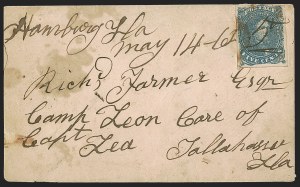 Hamburg Fla
May 14 62
Richd Farmer Esqr
Camp Leon Care of
Capt Lea Tallahassee
Fla